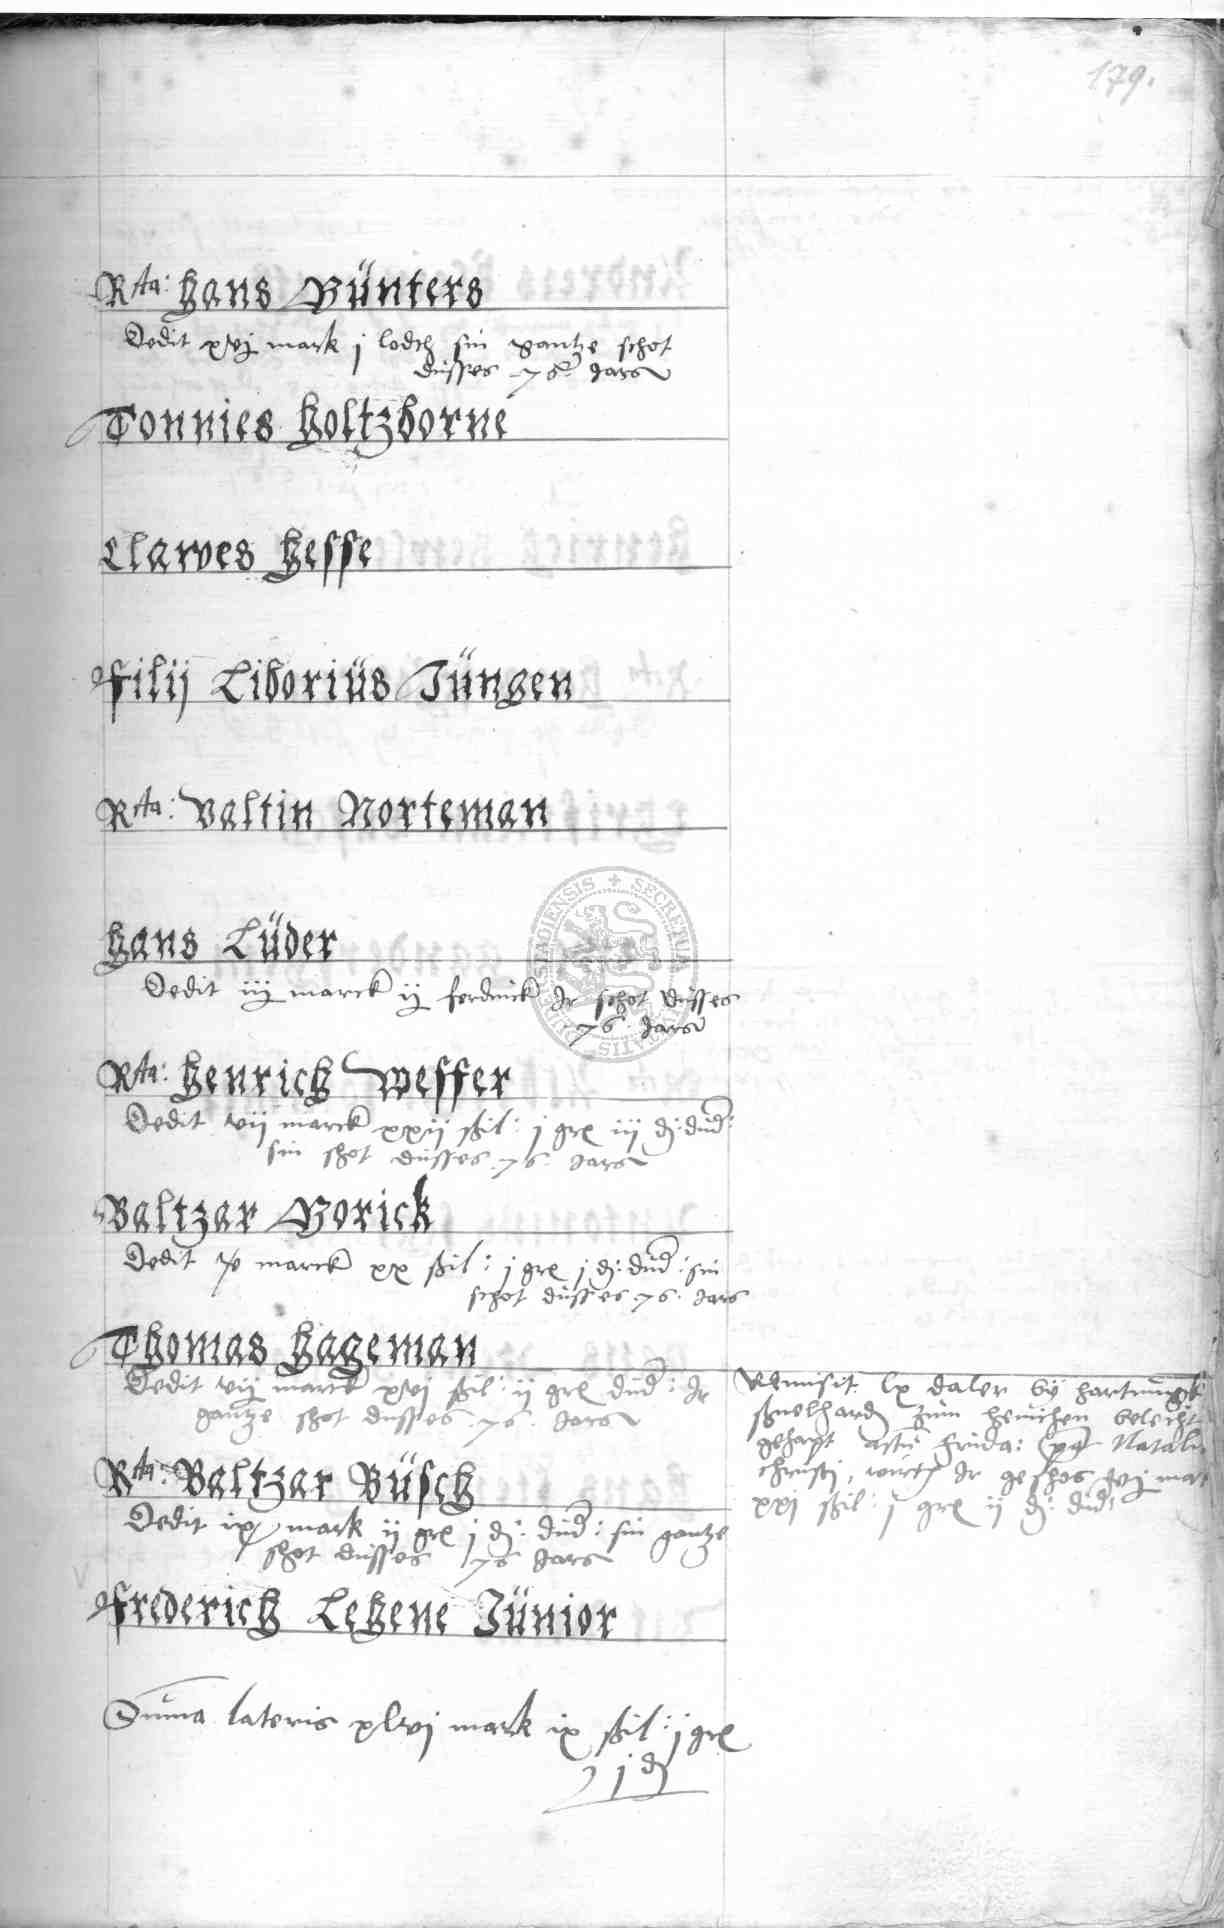 179.
Rta: Hans Günters
Dedit xvj mark j lodtH sin gantze schot
dusses 76 Jars
Tonnies Holtzborne
Clawes Hesse
Filij Liborius Jüngen
Rta: Valtin Norteman
Hans Lüder
Dedit iij marck ij ferdinck Ir schot dusses
76 Jars
Rta: Henrich Wesser
Dedit vij marck xxij ßil: j gre iij d: dud:
sin schot dusses 76 Jars
Baltzar Borick
Dedit marck xx ßil: j gre j d: dud: sin
schot dusses 76 Jars
Thomas Hageman
Dedit vij marck xvj ßil: ij gre dud: Ir
gantze schot dusses 76 Jars
Remisit lx daler by Hartmugk
Snelhard zum belecht
gehapt Frida: Natali
Christi, Ir geschos vj mar
xxj ßil: j gre ij d: dud:
Rta: Baltzar Büsch
Dedit ix mark ij gre j d: dud: sin gantze
schot dusses 76 Jars
Frederich Lehene Jünior
Suma lateris xlvj mark ix ßil: j gre
j d